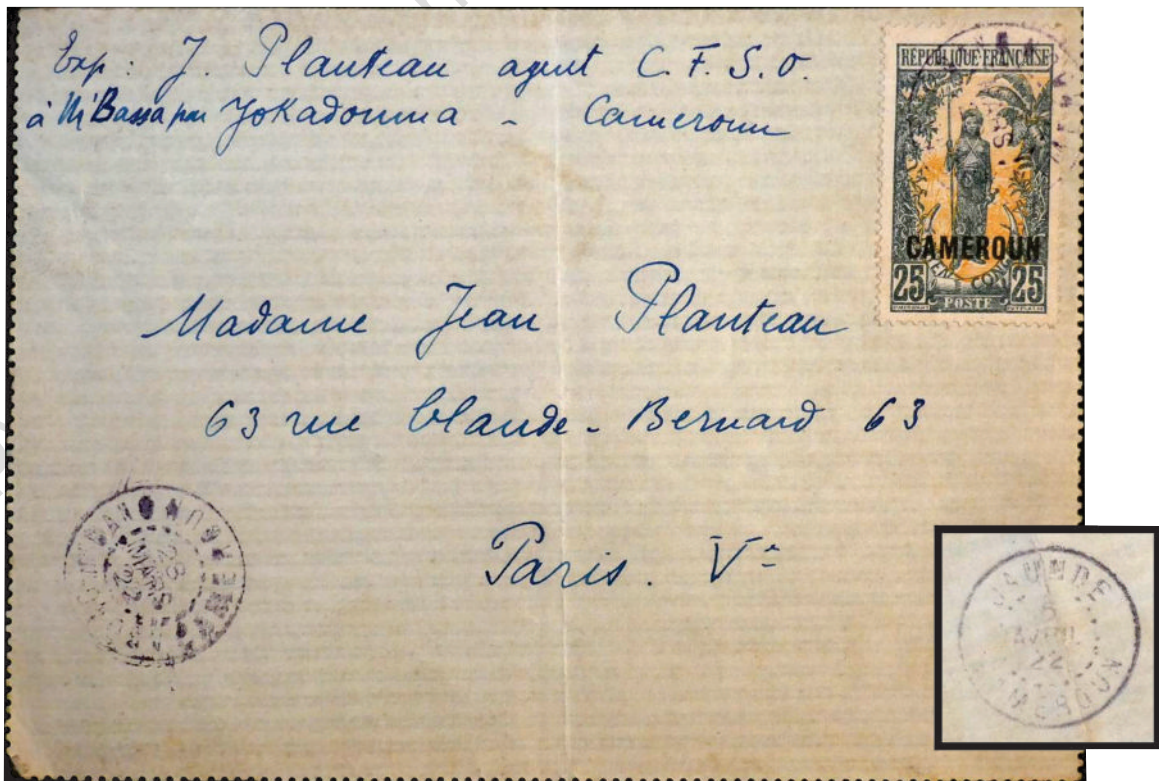 Exp: J. Planteau agent C. F. S. O.
à M'Bassa par Yokadouma - Cameroun
RÉPUBLIQUE FRANÇAISE
CAMEROUN
25 POSTE 25
Madame Jean Planteau
63 rue Claude-Bernard 63
Paris. Vᵉ
CAMEROUN
28
MARS
22
JAUNDE
5
AVRIL
22
CAMEROUN